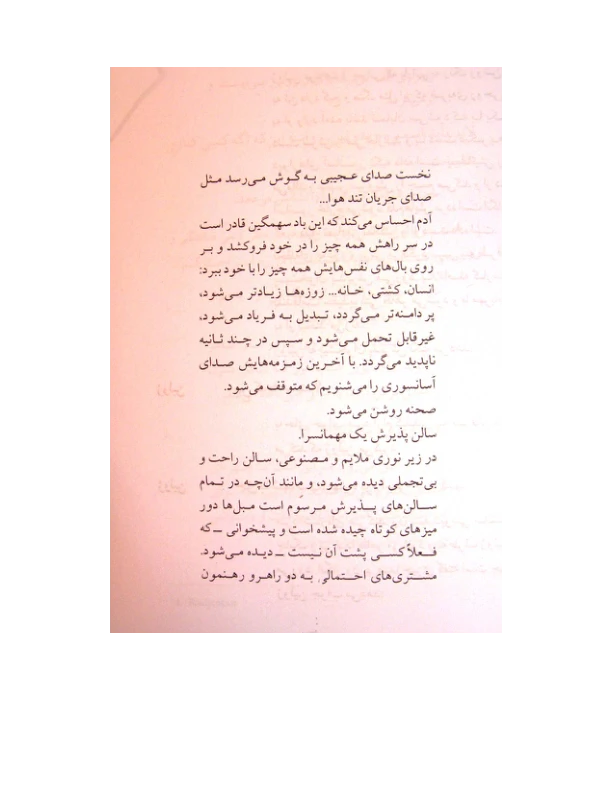 نخست صدای عجیبی به گوش می‌رسد مثل
صدای جریان تند هوا...
آدم احساس می‌کند که این باد سهمگین قادر است
در سر راهش همه چیز را در خود فروکشد و بر
روی بال‌های نفس‌هایش همه چیز را با خود ببرد:
انسان، کشتی، خانه... زوزه‌ها زیادتر می‌شود،
پر دامنه‌تر می‌گردد، تبدیل به فریاد می‌شود،
غیرقابل تحمل می‌شود و سپس در چند ثانیه
ناپدید می‌گردد. با آخرین زمزمه‌هایش صدای
آسانسوری را می‌شنویم که متوقف می‌شود.
صحنه روشن می‌شود.
سالن پذیرش یک مهمانسرا.
در زیر نوری ملایم و مصنوعی، سالن راحت و
بی‌تجملی دیده می‌شود، و مانند آن‌چه در تمام
سالن‌های پذیرش مرسوم است مبل‌ها دور
میزهای کوتاه چیده شده است و پیشخوانی ــ که
فعلاً کسی پشت آن نیست ــ دیده می‌شود.
مشتری‌های احتمالی به دو راهرو رهنمون